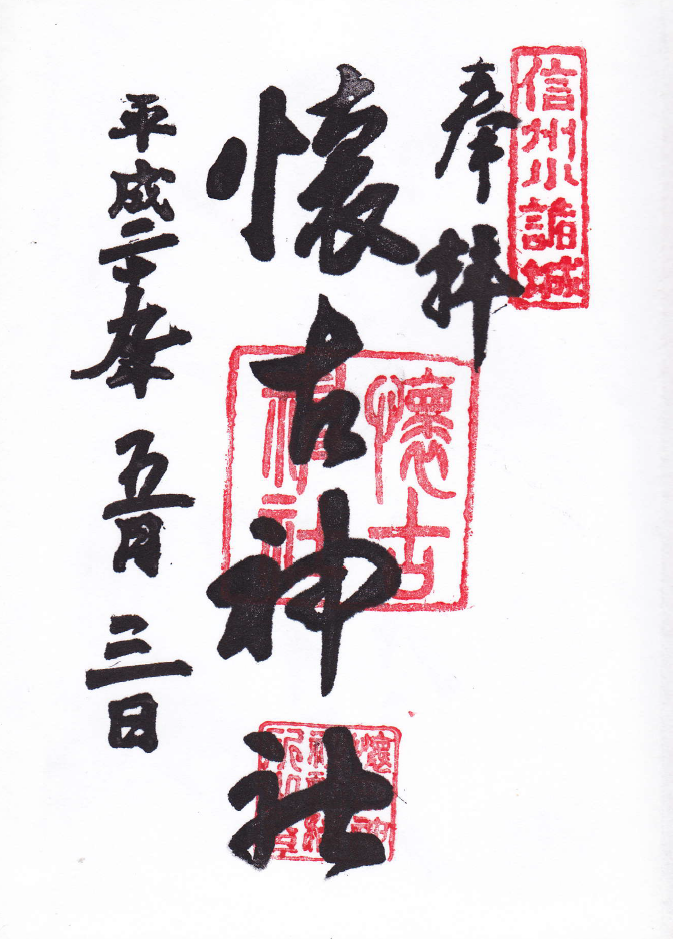 信州小諸城
奉拝
懐古神社
懐古
神社
平成二十九年五月三日